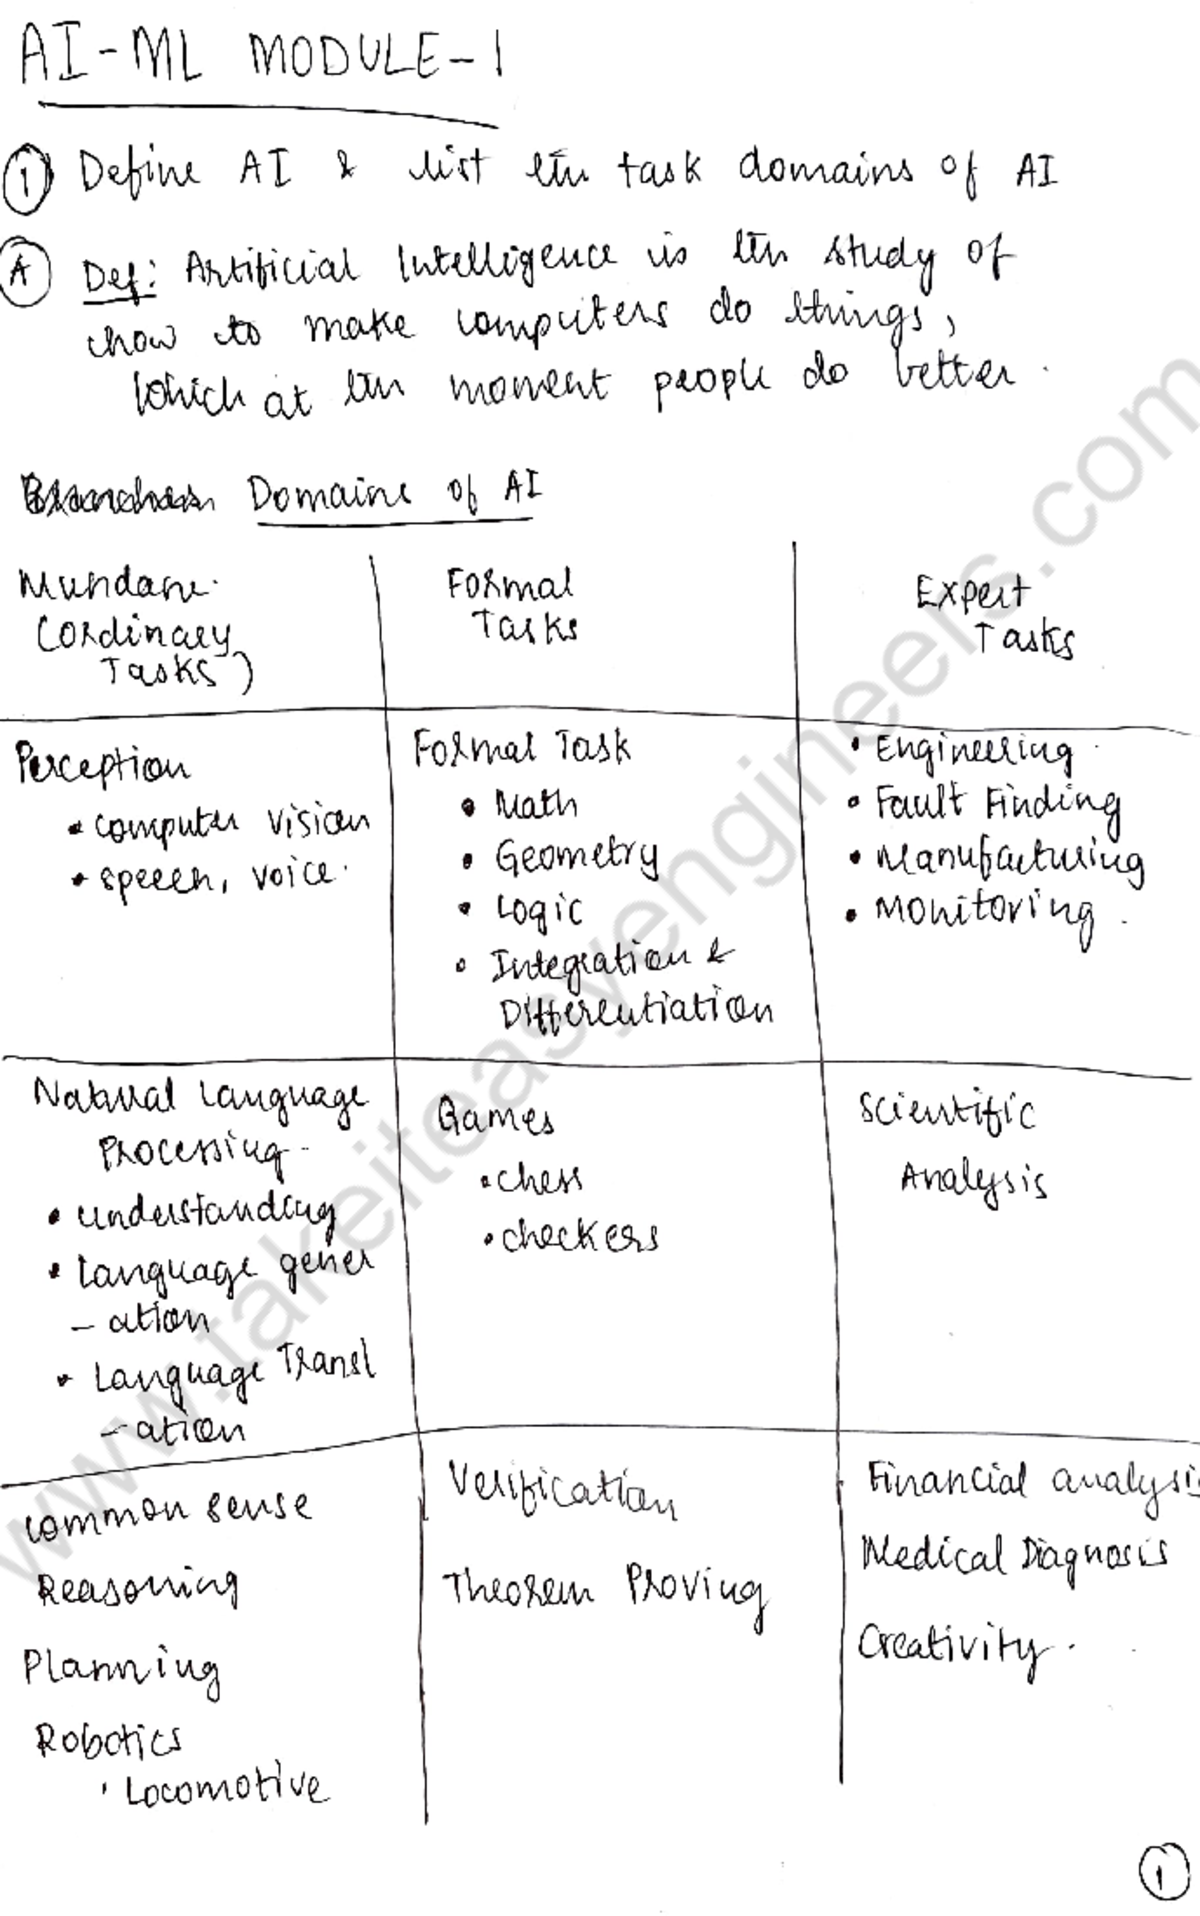 AI-ML MODULE-1
1 Define AI & list the task domains of AI
A Def: Artificial Intelligence is the study of
how to make computers do things,
which at the moment people do better.
Branches Domains of AI
Mundane
(Ordinary
Tasks)
Formal
Tasks
Expert
Tasks
Perception
• computer vision
• speech, voice.
Formal Task
• Math
• Geometry
• Logic
• Integration &
Differentiation
• Engineering.
• Fault Finding
• Manufacturing
• Monitoring.
Natural Language
Processing.
• understanding
• Language gener
- ation
• Language Transl
- ation
Games
• chess
• checkers
Scientific
Analysis
common sense
Reasoning
Planning
Robotics
• Locomotive
Verification
Theorem Proving
Financial analysis
Medical Diagnosis
Creativity.
1
www.takeiteasyengineers.com